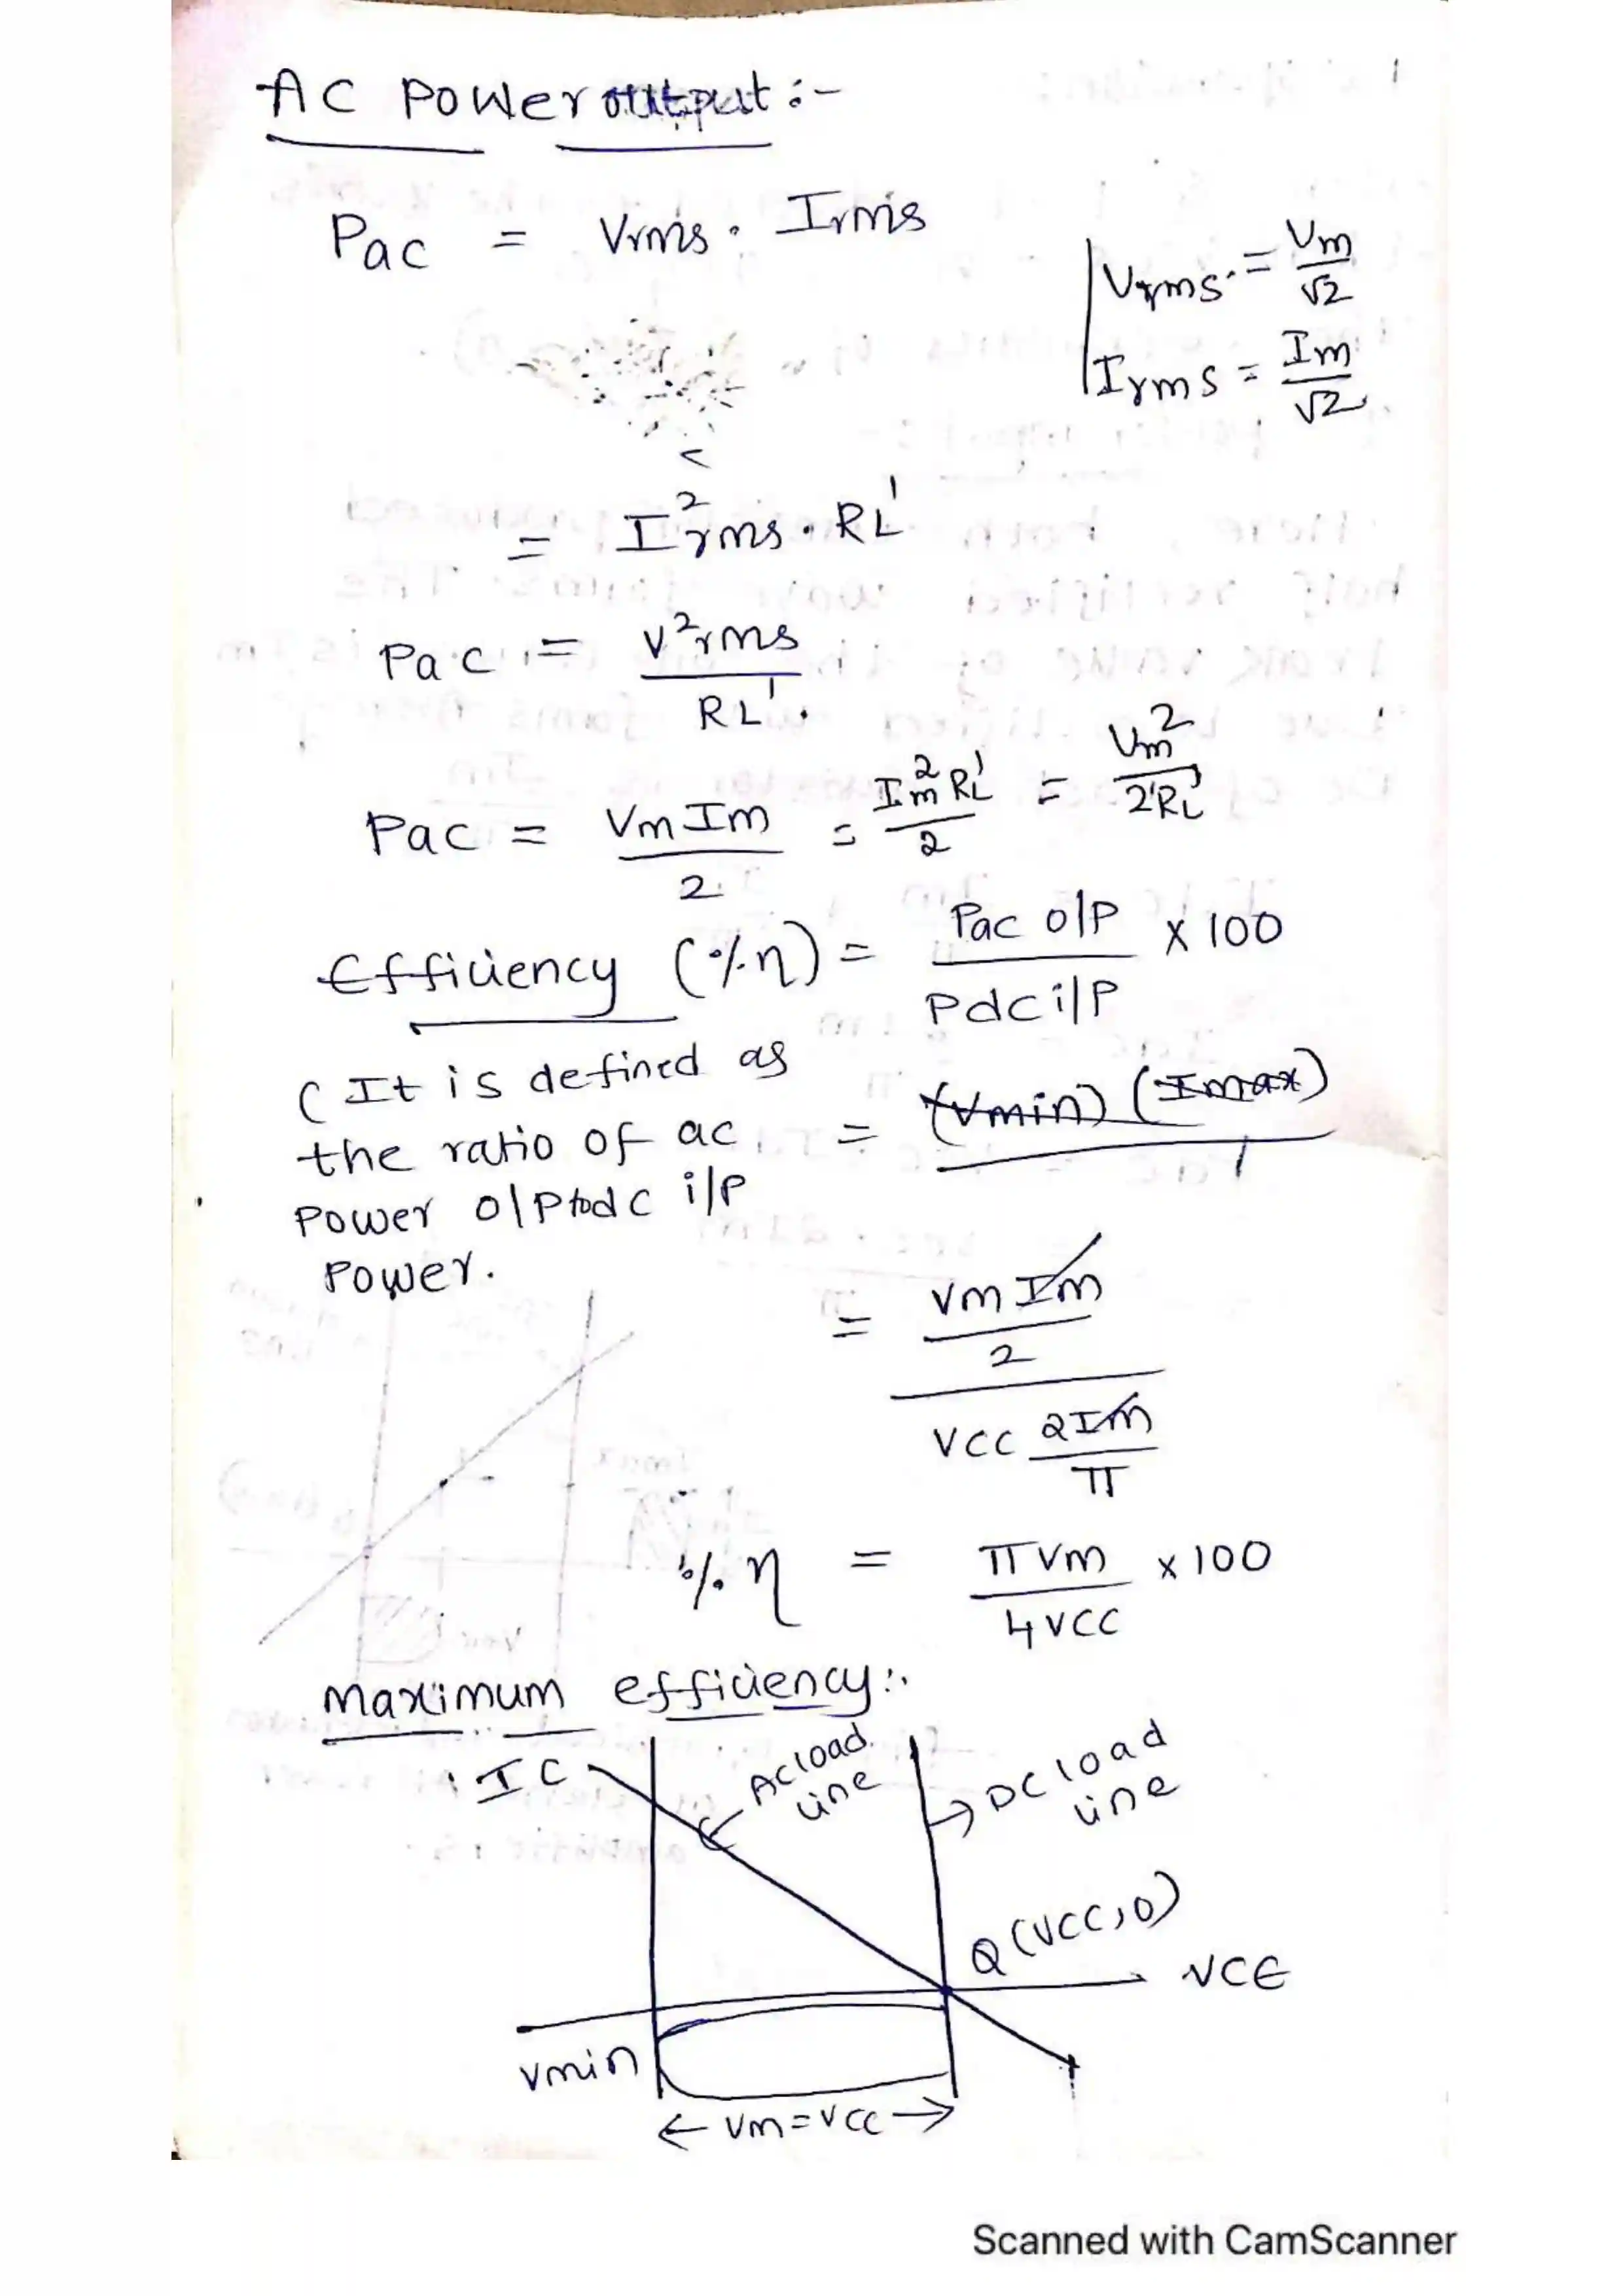 AC Power output :-
Pac = Vrms . Irms
Vrms = Vm/√2
Irms = Im/√2
= I²rms . RL'
Pac = V²rms/RL'.
Pac = VmIm/2 = Im²RL'/2 = Vm²/2RL'
Efficiency (%η) = Pac o/p / Pdc i/p x 100
(It is defined as
the ratio of ac
power o/p to dc i/p
power.
= (Vmin) (Imax)
= VmIm/2 / VCC 2Im/π
%η = πVm/4VCC x 100
maximum efficiency:.
IC
AC load
line
→ DC load
line
Q (VCC,0)
VCE
Vmin
← Vm = VCC →
Scanned with CamScanner